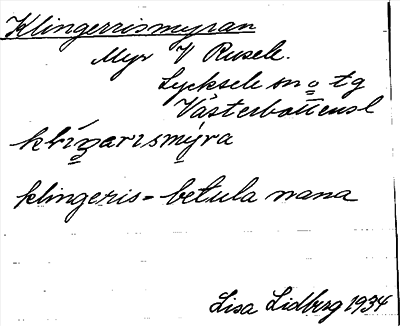 Klingerrismyran
Myr V Rusele.
Lycksele sn o tg
Västerbottensl
klingeris = betula nana
Lisa Lidberg 1934